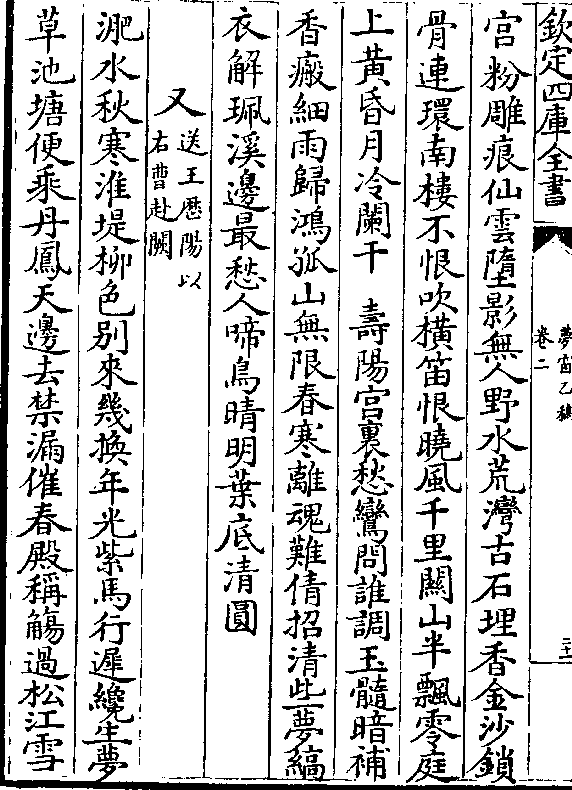 欽定四庫全書
夢窗乙稿
卷二
宮粉雕痕仙雲墮影無人野水荒灣古石埋香金沙鎖
骨連環南樓不恨吹橫笛恨曉風千里關山半飄零庭
上黄昏月冷闌干　壽陽宫裏愁鸞問誰調玉髓暗補
香瘢細雨歸鴻孤山無限春寒離魂難倩招清些夢縞
衣解珮溪邊最愁人啼鳥晴明葉底清圓
又
送王歴陽以
右曹赴闕
淝水秋寒淮堤柳色别來幾換年光紫馬行遲纔生夢
草池塘便乘丹鳳天邊去禁漏催春殿稱觴過松江雪